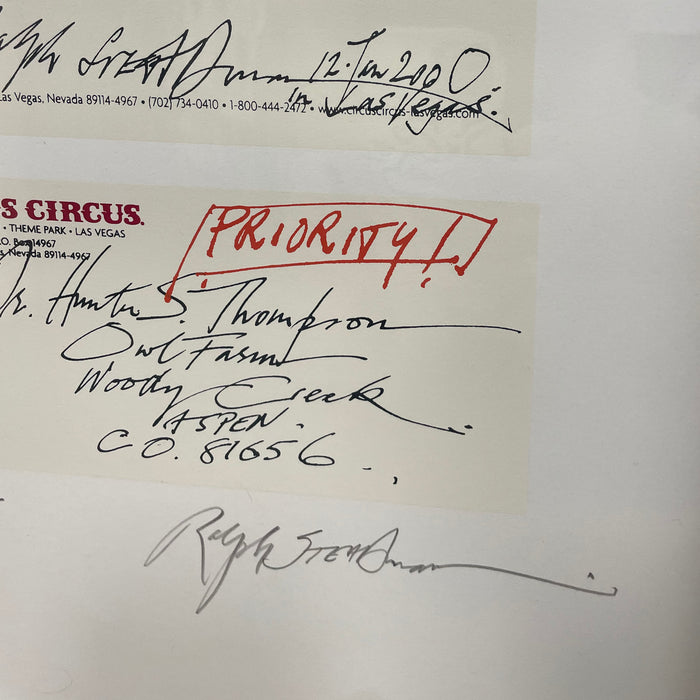 Ralph STEADman 12. Jan 2000.
in Las Vegas.
Las Vegas, Nevada 89114-4967 • (702) 734-0410 • 1-800-444-2472 • www.circuscircus-lasvegas.com
S CIRCUS.
• THEME PARK • LAS VEGAS
P.O. Box 14967
Nevada 89114-4967
PRIORITY!
Dr. Hunter S. Thompson
Owl Farm
Woody Creek
ASPEN.
CO. 81656
Ralph STEADman